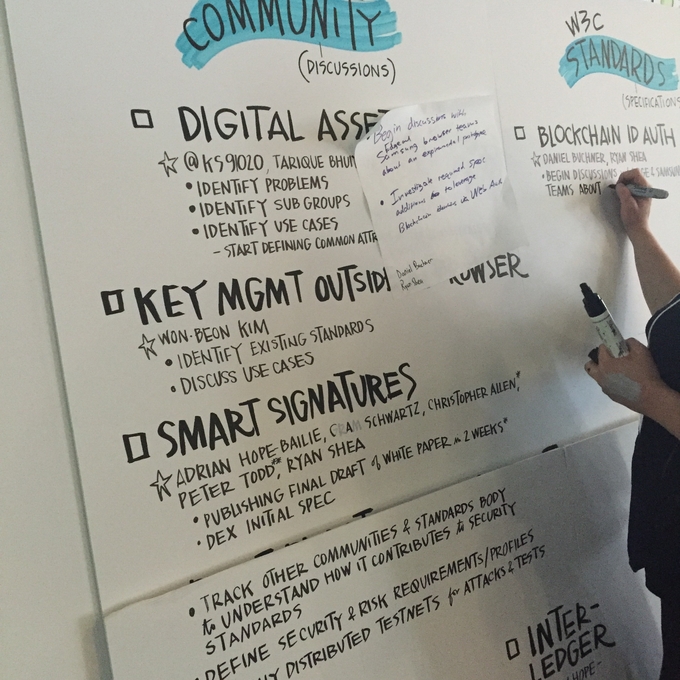 COMMUNITY
(DISCUSSIONS)
DIGITAL ASSE
@KS91020, TARIQUE BHUI
• IDENTIFY PROBLEMS
• IDENTIFY SUB GROUPS
• IDENTIFY USE CASES
- START DEFINING COMMON ATTR
KEY MGMT OUTSIDE BROWSER
WON-BEON KIM
• IDENTIFY EXISTING STANDARDS
• DISCUSS USE CASES
SMART SIGNATURES
ADRIAN HOPE-BAILIE, SCHWARTZ, CHRISTOPHER ALLEN,*
PETER TODD,** RYAN SHEA
• PUBLISHING FINAL DRAFT of WHITE PAPER in 2 WEEKS*
• DEX INITIAL SPEC
• TRACK OTHER COMMUNITIES & STANDARDS BODY
to UNDERSTAND HOW IT CONTRIBUTES to SECURITY
STANDARDS
DEFINE SECURITY & RISK REQUIREMENTS/PROFILES
DISTRIBUTED TESTNETS for ATTACKS & TESTS
Begin discussions with
Edge and
Samsung browser teams
about an experimental prototype
• Investigate required spec
additions to leverage
Blockchain via Web Auth
Daniel Buchner
Ryan Shea
W3C
STANDARDS
(SPECIFICATIONS
BLOCKCHAIN ID AUTH
DANIEL BUCHNER, RYAN SHEA
• BEGIN DISCUSSIONS GE & SAMSUN
TEAMS ABOUT
INTER-
LEDGER
HOPE-